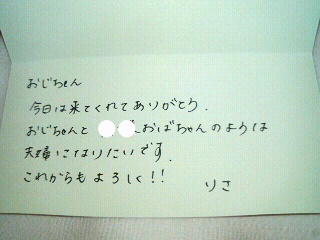 おじちゃん
今日は来てくれてありがとう.
おじちゃんと おばちゃんのような
夫婦になりたいです.
これからもよろしく!!
りさ